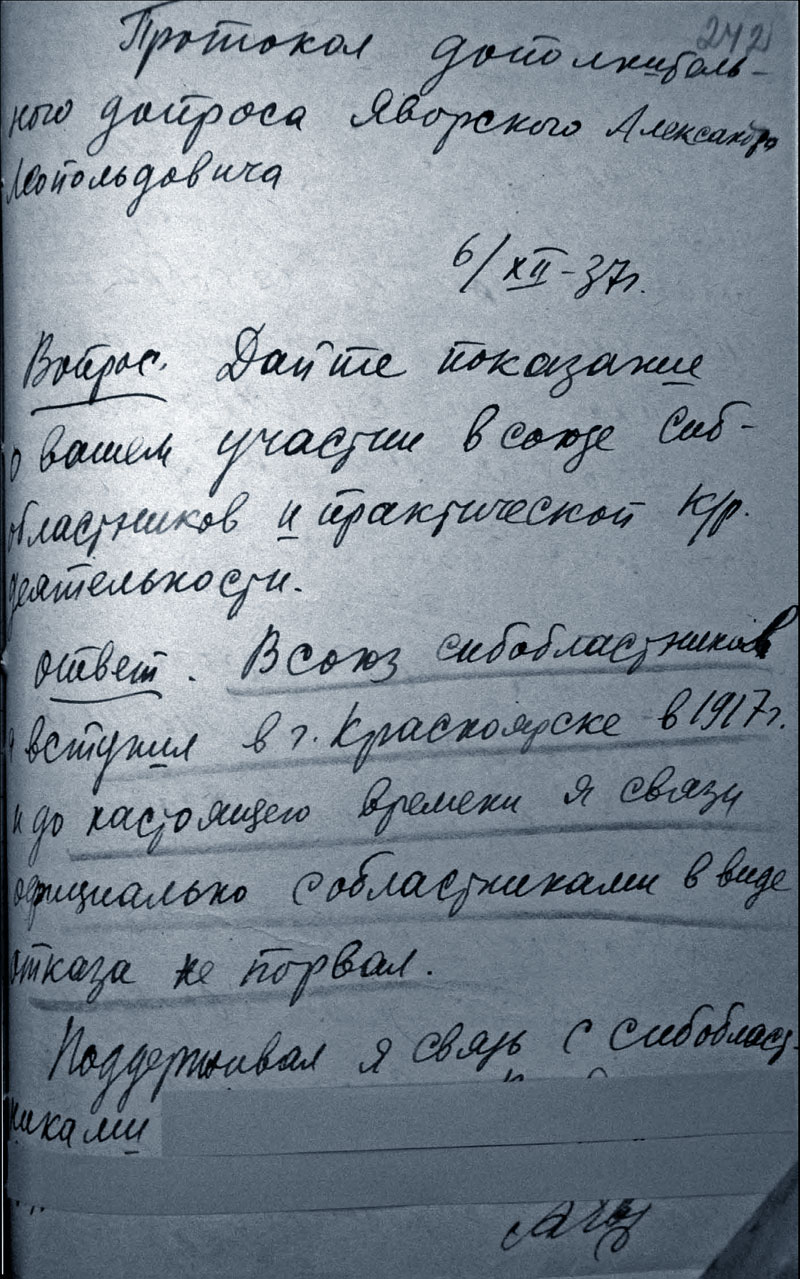 242
Протокол дополнитель-
ного допроса Яворского Александра
Леопольдовича
6/XII-37г.
Вопрос. Дайте показание
о вашем участии в союзе сиб-
областников и практической к/р.
деятельности.
Ответ. В союз сибобластников
я вступил в г. Красноярске в 1917г.
и до настоящего времени я связи
официально с областниками в виде
отказа не порвал.
Поддерживал я связь с сибобласт-
никами